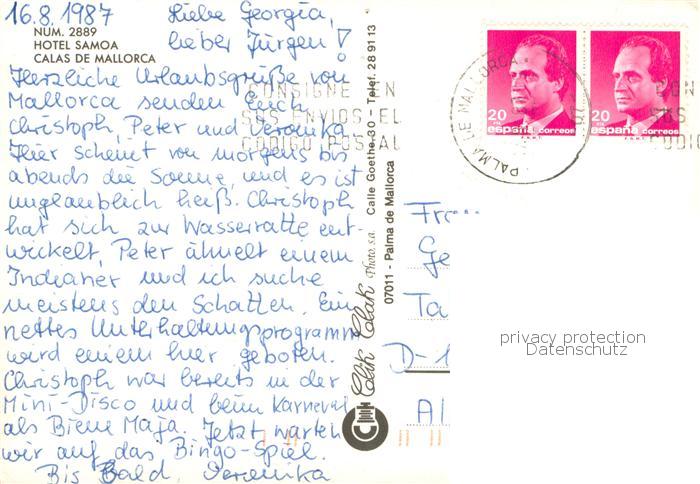 16.8.1987
NUM. 2889
HOTEL SAMOA
CALAS DE MALLORCA
Liebe Georgia,
lieber Jürgen!
Herzliche Urlaubsgrüße von
Mallorca senden Euch
Christoph, Peter und Veronika.
Hier scheint von morgens bis
abends die Sonne, und es ist
unglaublich heiß. Christoph
hat sich zur Wasserratte ent-
wickelt, Peter ähnelt einem
Indianer und ich suche
meistens den Schatten. Ein
nettes Unterhaltungsprogramm
wird einem hier geboten.
Christoph war bereits in der
Mini-Disco und beim Karneval
als Biene Maja. Jetzt warten
wir auf das Bingo-Spiel.
Bis Bald, Veronika
CONSIGNE EN
SUS ENVIOS EL
CODIGO POSTAL
Clik Clak Photo s.a. Calle Goethe, 30 - Telef. 28 91 13
07011 - Palma de Mallorca
PALMA DE MALLORCA
20 PTA
españa correos
F.N.M.T.
20 PTA
españa correos
F.N.M.T.
CON
SUS
CODIG
Fr
Ge
Ta
D-1
Al
privacy protection
Datenschutz